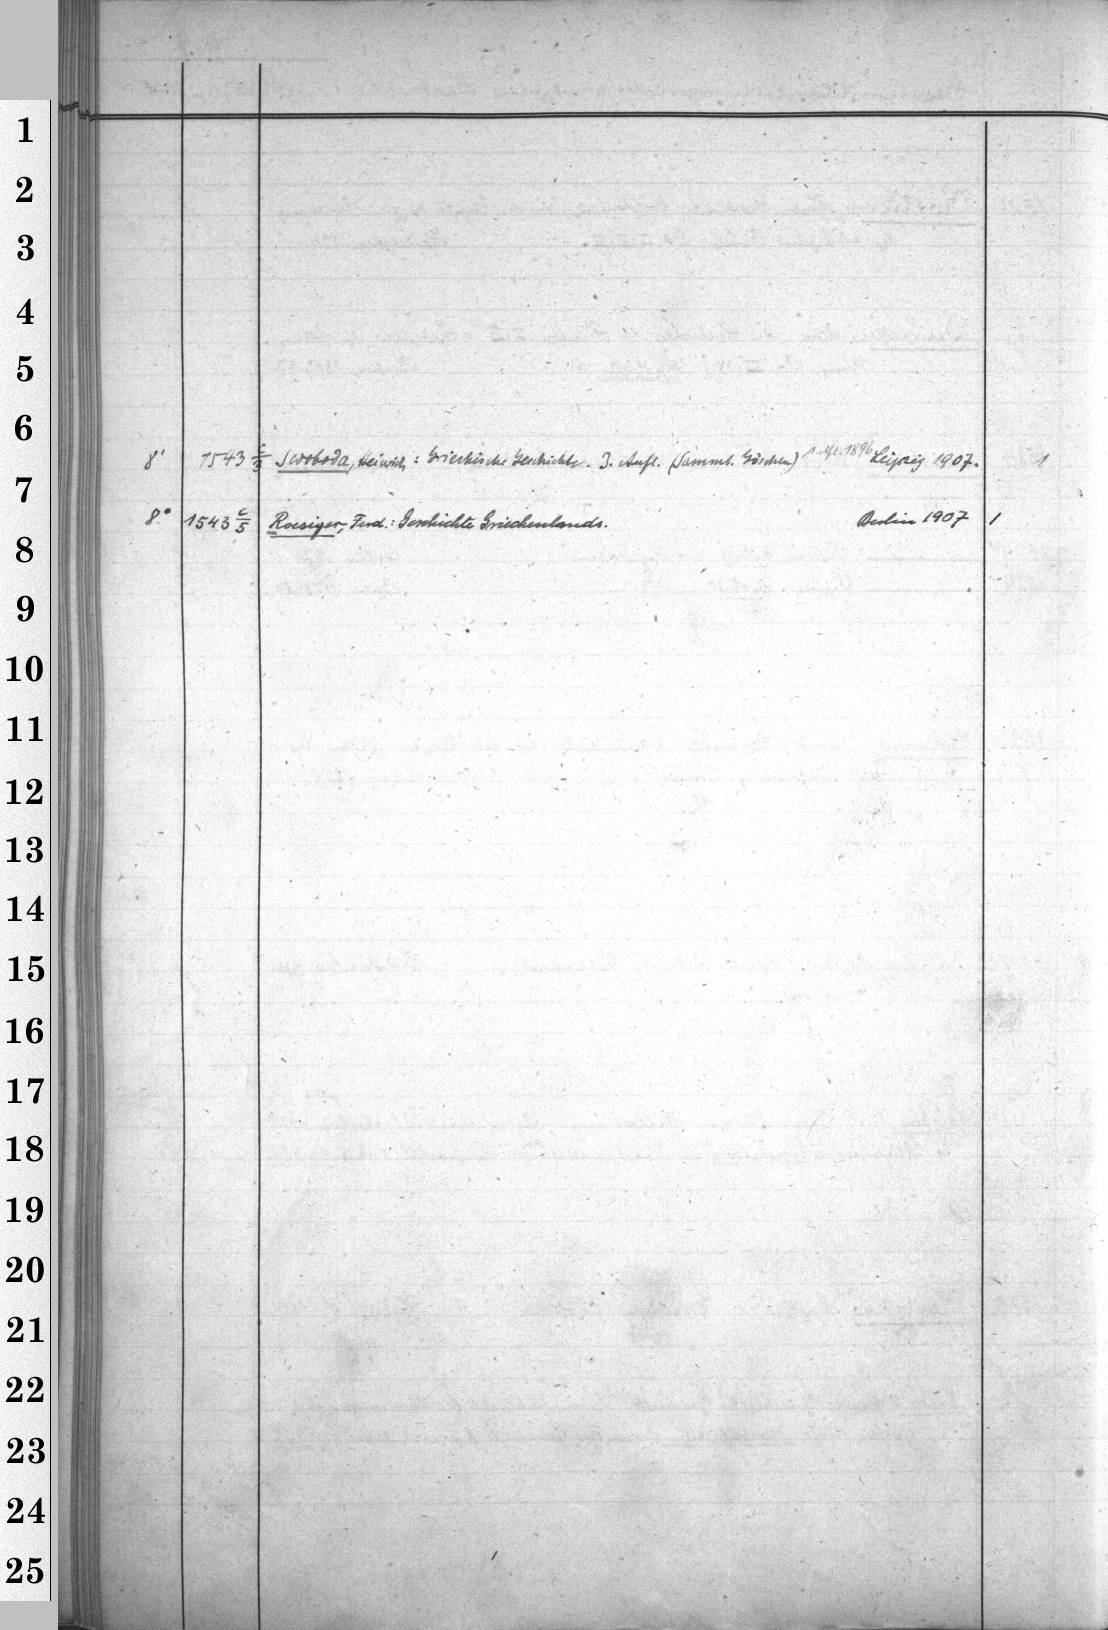 1
2
3
4
5
6
8' 1543 c/3 Swoboda, Heinrich: Griechische Geschichte. 3. Aufl. (Samml. Göschen) 1. Afl. 1896 Leipzig 1907. 1
7
8° 1543 c/5 Roesiger, Ferd.: Geschichte Griechenlands. Berlin 1907 1
8
9
10
11
12
13
14
15
16
17
18
19
20
21
22
23
24
25